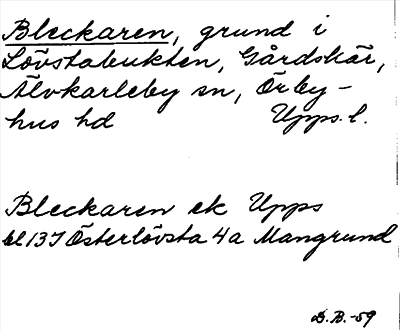 Bleckaren, grund i
Lövstabukten, Gårdskär,
Älvkarleby sn, Örby-
hus hd Upps. l.
Bleckaren ek Upps
bl 137 Österlövsta 4a Mangrund
D.B.-59